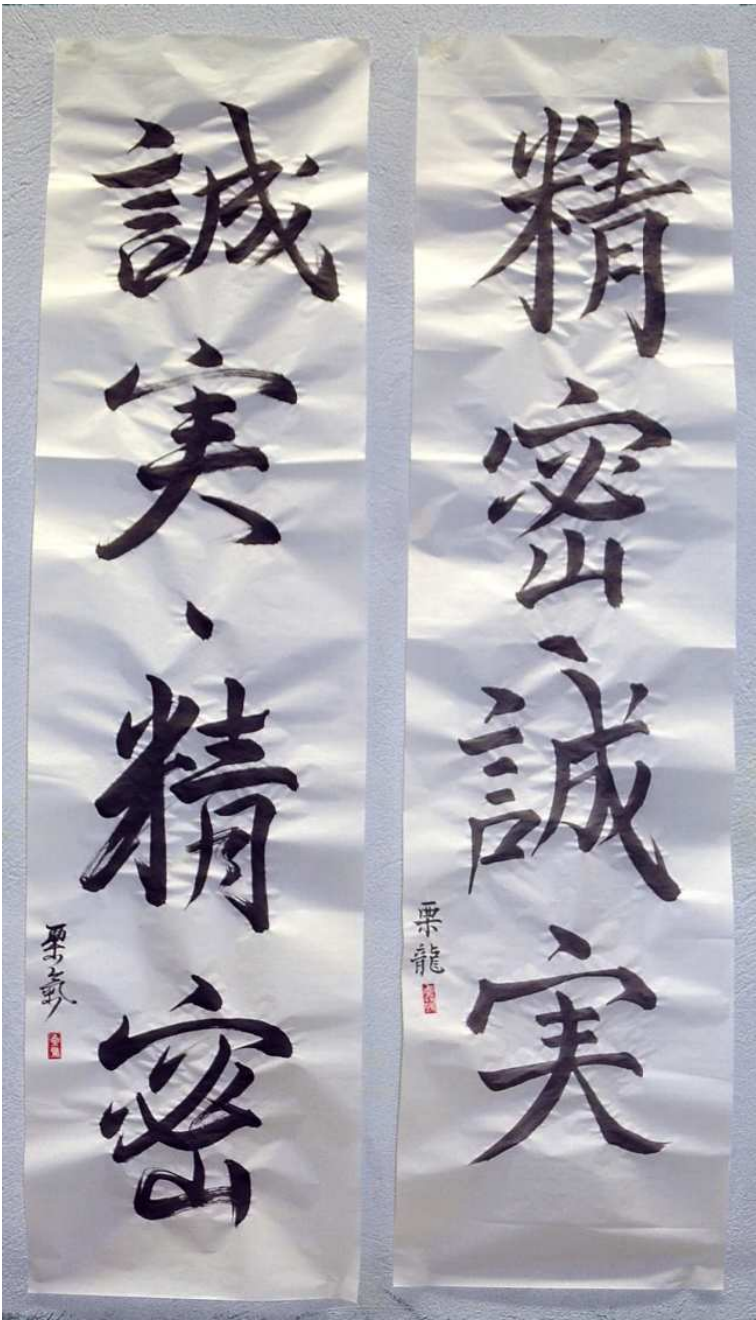 精密、誠実
栗龍
誠実、精密